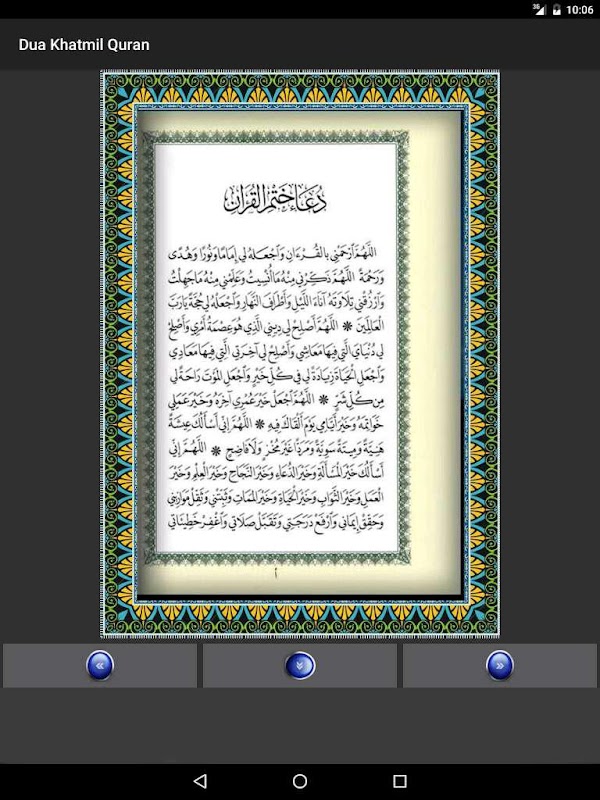 3G 10:06
Dua Khatmil Quran
دُعَاءُ خَتْمِ الْقُرْآنِ
اللَّهُمَّ ارْحَمْنِي بِالْقُرْءَانِ وَاجْعَلْهُ لِي إِمَامًا وَنُورًا وَهُدًى
وَرَحْمَةً اللَّهُمَّ ذَكِّرْنِي مِنْهُ مَا أُنْسِيتُ وَعَلِّمْنِي مِنْهُ مَا جَهِلْتُ
وَارْزُقْنِي تِلَاوَتَهُ آنَاءَ اللَّيْلِ وَأَطْرَافَ النَّهَارِ وَاجْعَلْهُ لِي حُجَّةً يَا رَبَّ
الْعَالَمِينَ ❋ اللَّهُمَّ أَصْلِحْ لِي دِينِي الَّذِي هُوَ عِصْمَةُ أَمْرِي وَأَصْلِحْ
لِي دُنْيَايَ الَّتِي فِيهَا مَعَاشِي وَأَصْلِحْ لِي آخِرَتِي الَّتِي فِيهَا مَعَادِي
وَاجْعَلِ الْحَيَاةَ زِيَادَةً لِي فِي كُلِّ خَيْرٍ وَاجْعَلِ الْمَوْتَ رَاحَةً لِي
مِنْ كُلِّ شَرٍّ ❋ اللَّهُمَّ اجْعَلْ خَيْرَ عُمْرِي آخِرَهُ وَخَيْرَ عَمَلِي
خَوَاتِمَهُ وَخَيْرَ أَيَّامِي يَوْمَ أَلْقَاكَ فِيهِ ❋ اللَّهُمَّ إِنِّي أَسْأَلُكَ عِيشَةً
هَنِيَّةً وَمِيتَةً سَوِيَّةً وَمَرَدًّا غَيْرَ مُخْزٍ وَلَا فَاضِحٍ ❋ اللَّهُمَّ إِنِّي
أَسْأَلُكَ خَيْرَ الْمَسْأَلَةِ وَخَيْرَ الدُّعَاءِ وَخَيْرَ النَّجَاحِ وَخَيْرَ الْعِلْمِ وَخَيْرَ
الْعَمَلِ وَخَيْرَ الثَّوَابِ وَخَيْرَ الْحَيَاةِ وَخَيْرَ الْمَمَاتِ وَثَبِّتْنِي وَثَقِّلْ مَوَازِينِي
وَحَقِّقْ إِيمَانِي وَارْفَعْ دَرَجَتِي وَتَقَبَّلْ صَلَاتِي وَاغْفِرْ خَطِيئَاتِي
أ